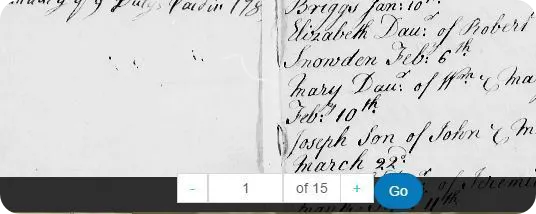 Dutys Paid in 178
Briggs Jan: 10th
Elizabeth Daur. of Robert
Snowden Feb: 6th
Mary Daur. of Wm. & Ma
Feb: 10th
Joseph Son of John & M
March 22d
of Jeremi
- 1 of 15 + Go